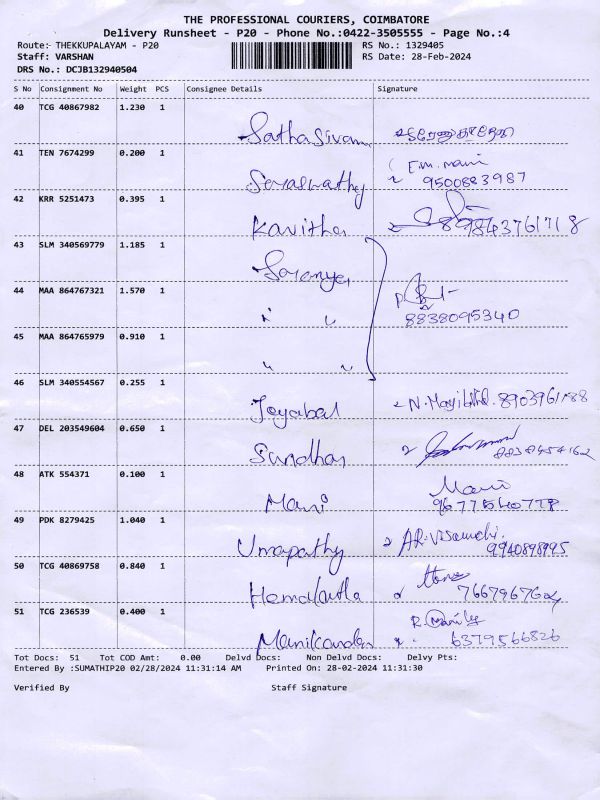 THE PROFESSIONAL COURIERS, COIMBATORE
Delivery Runsheet - P20 - Phone No.:0422-3505555 - Page No.:4
Route: THEKKUPALAYAM - P20 RS No.: 1329405
Staff: VARSHAN RS Date: 28-Feb-2024
DRS No.: DCJB132940504
S No Consignment No Weight PCS Consignee Details Signature
40 TCG 40867982 1.230 1
SathaSivam
41 TEN 7674299 0.200 1
E.m. mani
Saraswathy 9500883987
42 KRR 5251473 0.395 1
Kavitha
43 SLM 340569779 1.185 1
Saranya
44 MAA 864767321 1.570 1
" " 8838095340
45 MAA 864765979 0.910 1
" "
46 SLM 340554567 0.255 1
Jeyabal
47 DEL 203549604 0.650 1
Sundhar
48 ATK 554371 0.100 1
Mani
Mani
49 PDK 8279425 1.040 1
Umapathy
50 TCG 40869758 0.840 1
Hemalatha
51 TCG 236539 0.400 1
Manikandan 6379566826
Tot Docs: 51 Tot COD Amt: 0.00 Delvd Docs: Non Delvd Docs: Delvy Pts:
Entered By :SUMATHIP20 02/28/2024 11:31:14 AM Printed On: 28-02-2024 11:31:30
Verified By Staff Signature